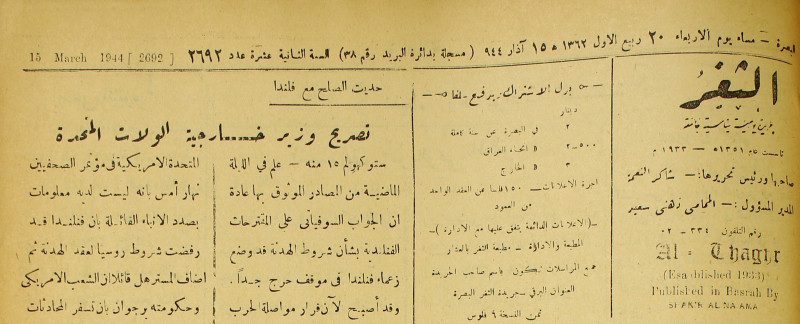 البصرة – مساء يوم الاربعاء ٢٠ ربيع الاول ١٣٦٢ ه ١٥ آذار ٩٤٤ ( مسجلة بدائرة البريد رقم ٣٨) السنة الثانية عشرة عدد ٢٦٩٢
15 March 1944 [ 2692 ]
الثغر
جريدة يومية سياسية جامعة
تأسست عام ١٣٥١ه – ١٩٣٣ م
صاحبها ورئيس تحريرها: – شاكر النعمة
المدير المسؤول: – المحامي زهدي سعيد
رقم التلفون ٣٣٤ – ٠٢
Al - Thaghr
(Established 1933)
Published in Basrah By
SHAKIR AL NAAMA
بدل الاشتراك ويدفع سلفا
دينار
٢ في البصرة عن سنة كاملة
٢-٥٠٠ » انحاء العراق
٣ » الخارج
اجرة الاعلانات – ١٥٠ فلسا عن العقد الواحد
من العقود
–(الاعلانات الدائمة يتفق عليها مع الادارة )–
المطبعة والادارة – مطبعة الثغر بالعشار
جميع المراسلات تكون باسم صاحب الجريدة
العنوان البرقي – جريدة الثغر البصرة
ثمن النسخة ٩ فلوس
حديث الصلح مع فنلندا
تصريح وزير خارجية الولات المتحدة
ستوكهولم ١٥ منه – علم في الليلة
الماضية من المصادر الموثوق بها عادة
ان الجواب السوفياتي على المقترحات
الفنلندية بشأن شروط الهدنة قد وضع
زعماء فنلندا في موقف حرج جداً.
وقد أصبح لآن قرار مواصلة الحرب
المتحدة الامريكية في مؤتمر الصحفيين
نهار أمس بانه ليست لديه معلومات
بصدد الانباء القائلة بان فنلندا قد
رفضت شروط روسيا لعقد الهدنة ثم
اضاف المستر هل قائلا ان الشعب الامريكي
وحكومته يرجوان بان تسفر المحادثات